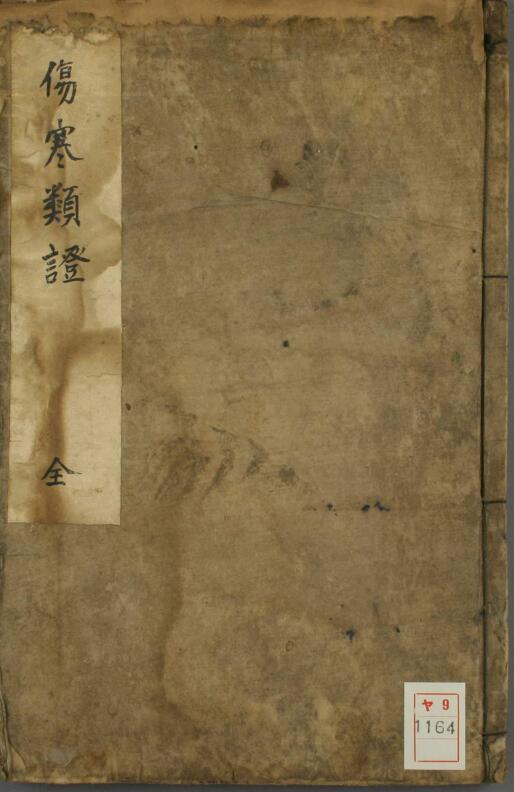 傷寒類證
全
ヤ9
1164